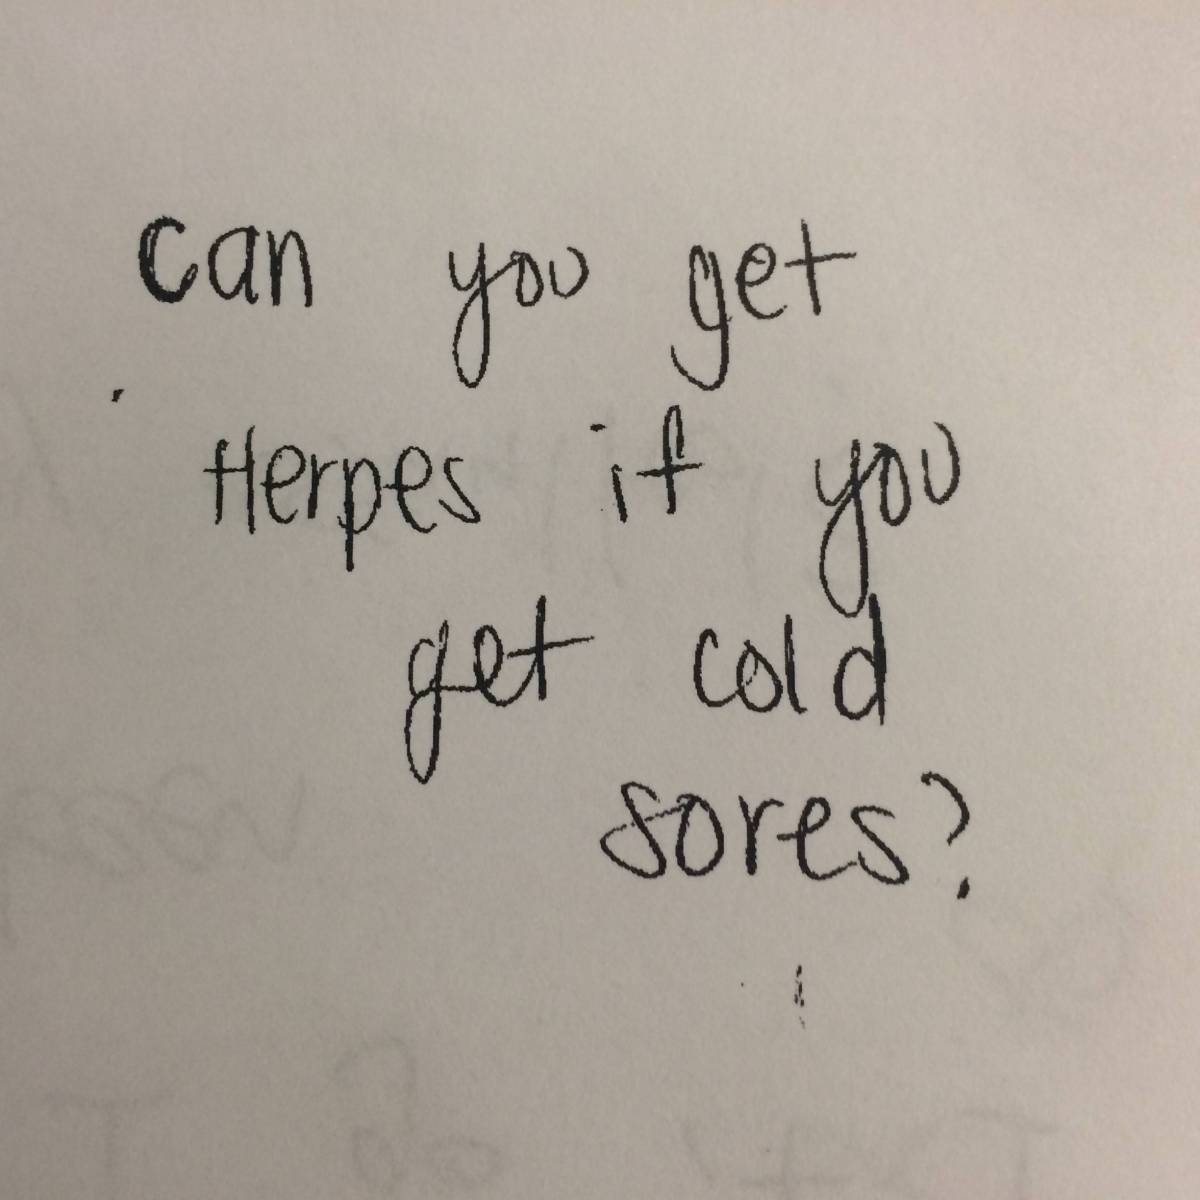 can you get
Herpes if you
get cold
sores?